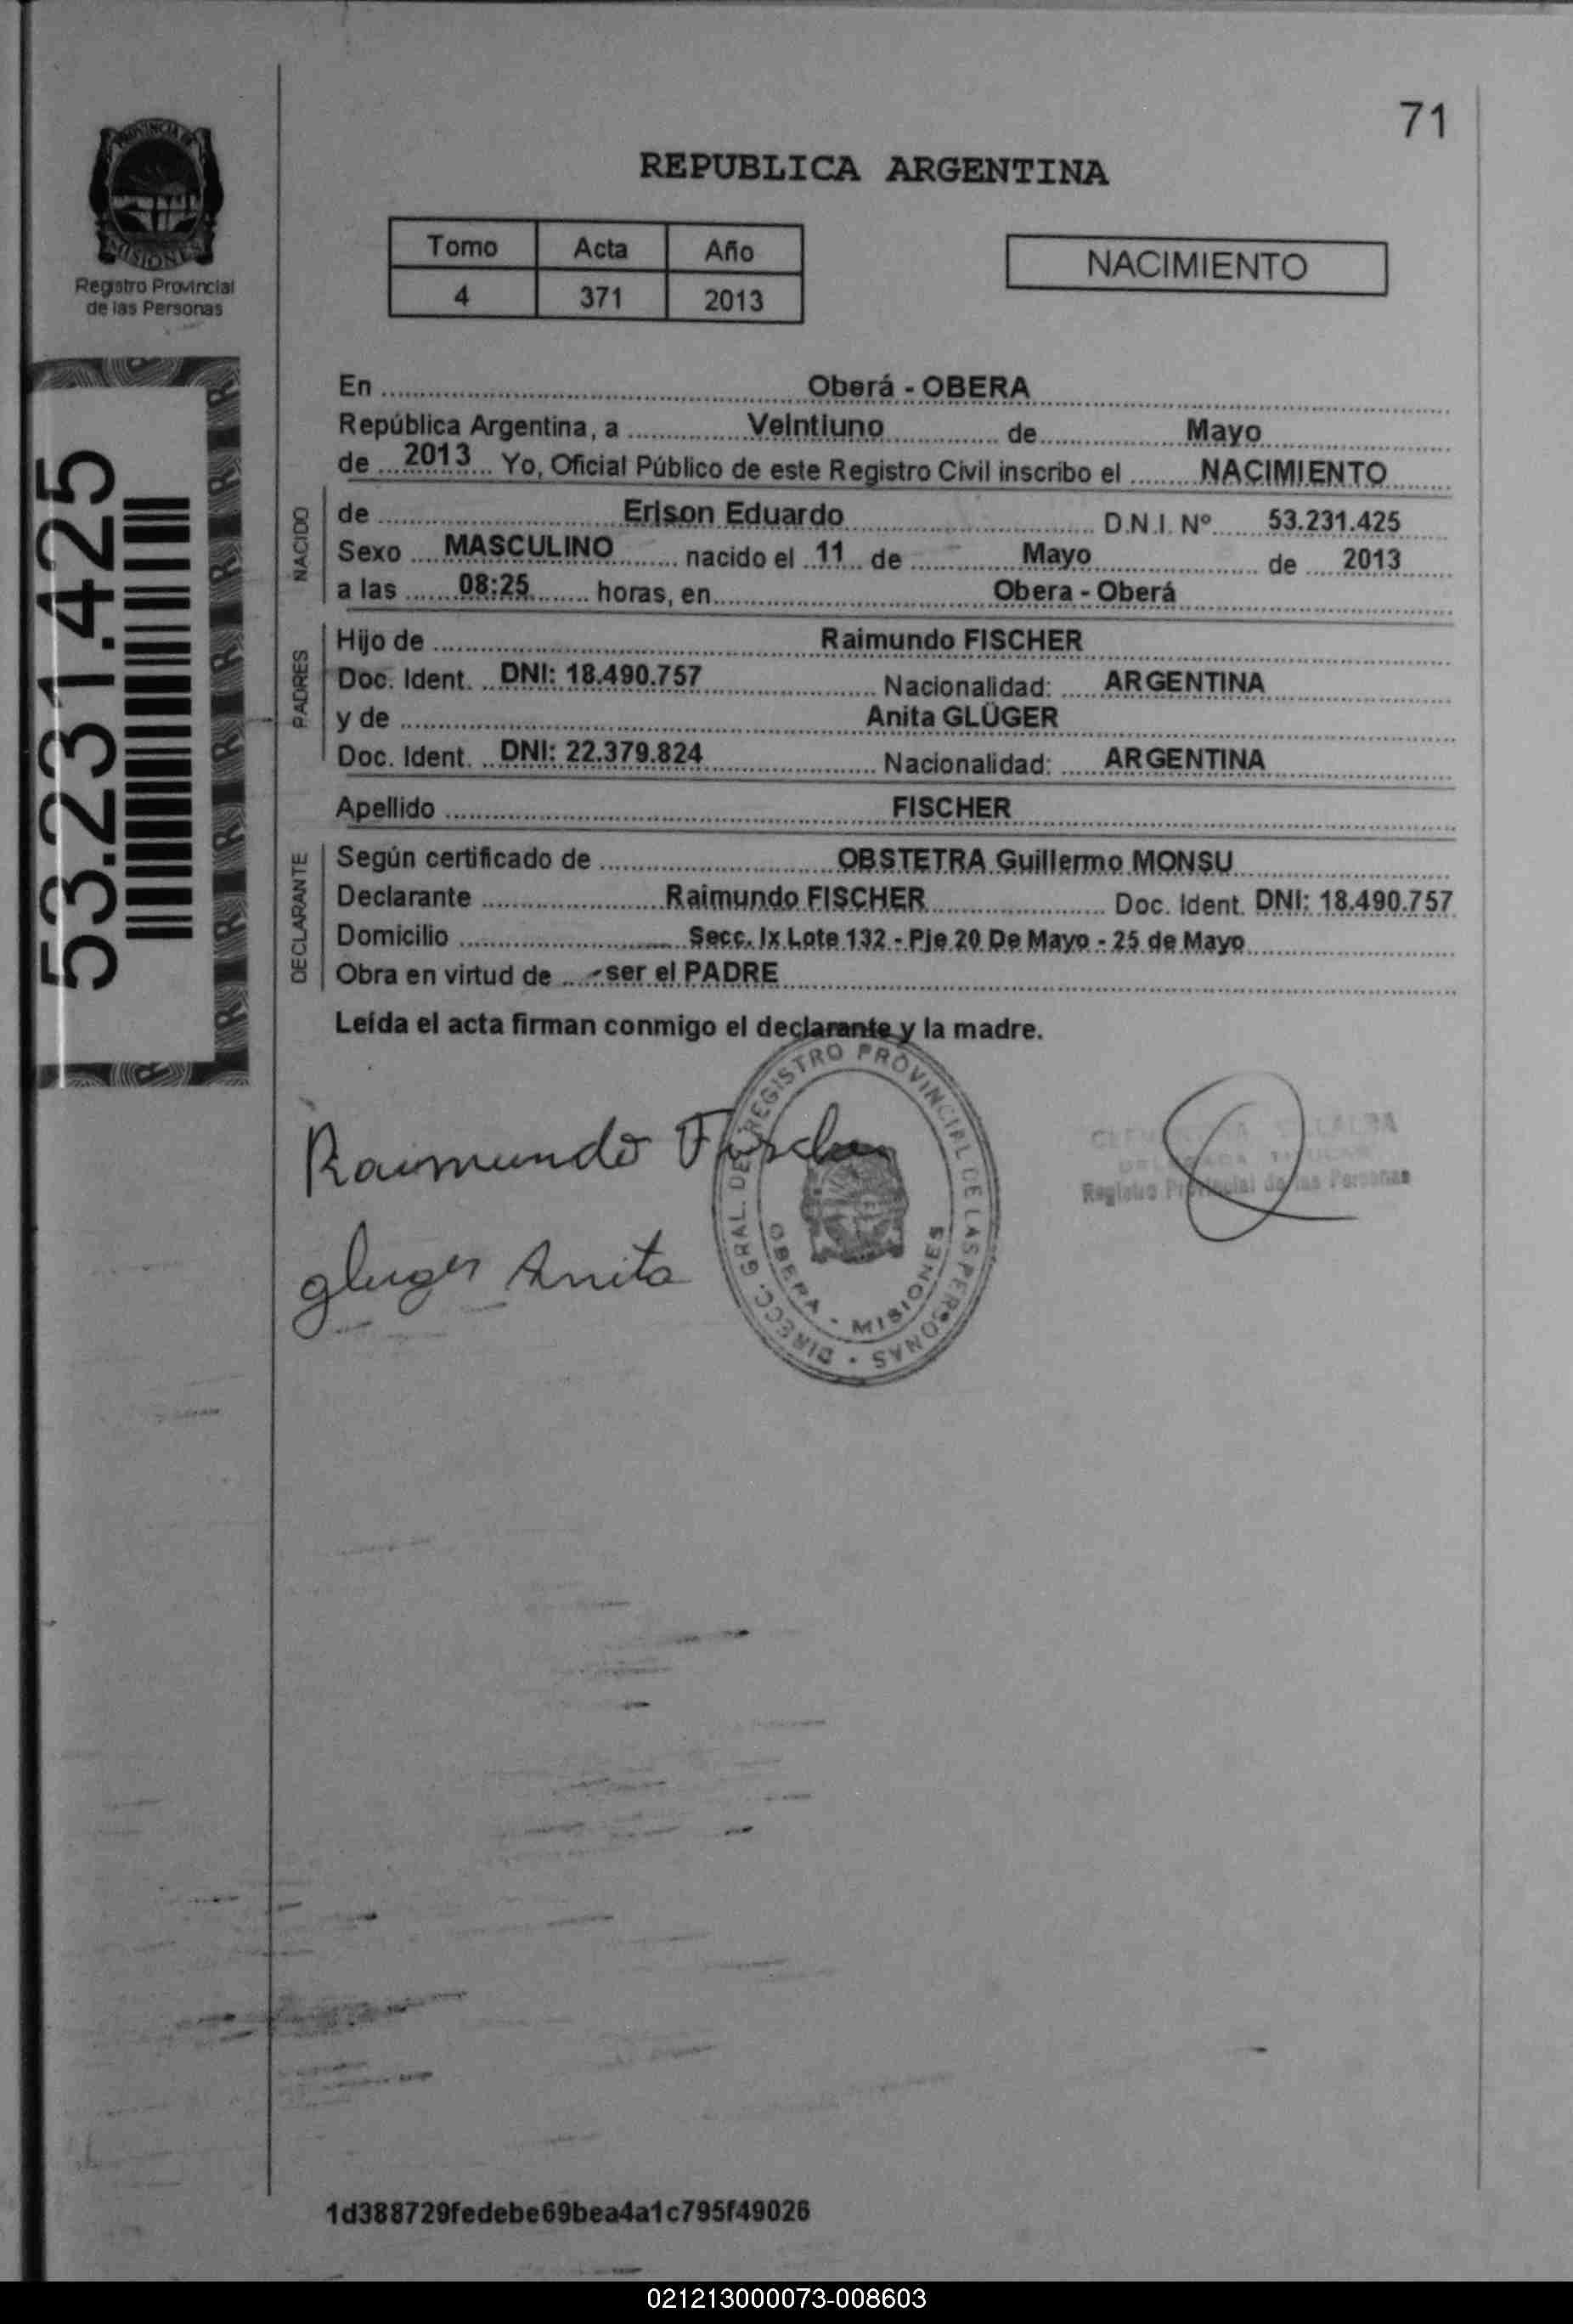 71
REPUBLICA ARGENTINA
PROVINCIA DE
MISIONES
Registro Provincial
de las Personas
Tomo Acta Año
4 371 2013
NACIMIENTO
53.231.425
En Oberá - OBERA
República Argentina, a Veintiuno de Mayo
de 2013 Yo, Oficial Público de este Registro Civil inscribo el NACIMIENTO
NACIDO
de Erison Eduardo D.N.I. Nº 53.231.425
Sexo MASCULINO nacido el 11 de Mayo de 2013
a las 08:25 horas, en Obera - Oberá
PADRES
Hijo de Raimundo FISCHER
Doc. Ident. DNI: 18.490.757 Nacionalidad: ARGENTINA
y de Anita GLÜGER
Doc. Ident. DNI: 22.379.824 Nacionalidad: ARGENTINA
Apellido FISCHER
DECLARANTE
Según certificado de OBSTETRA Guillermo MONSU
Declarante Raimundo FISCHER Doc. Ident. DNI: 18.490.757
Domicilio Secc. Ix Lote 132 - Pje 20 De Mayo - 25 de Mayo
Obra en virtud de - ser el PADRE
Leída el acta firman conmigo el declarante y la madre.
Raimundo Fischer
gluger Anita
DIRECC. GRAL. DEL REGISTRO PROVINCIAL DE LAS PERSONAS
OBERA - MISIONES
Registro Provincial de las Personas
1d388729fedebe69bea4a1c795f49026
021213000073-008603